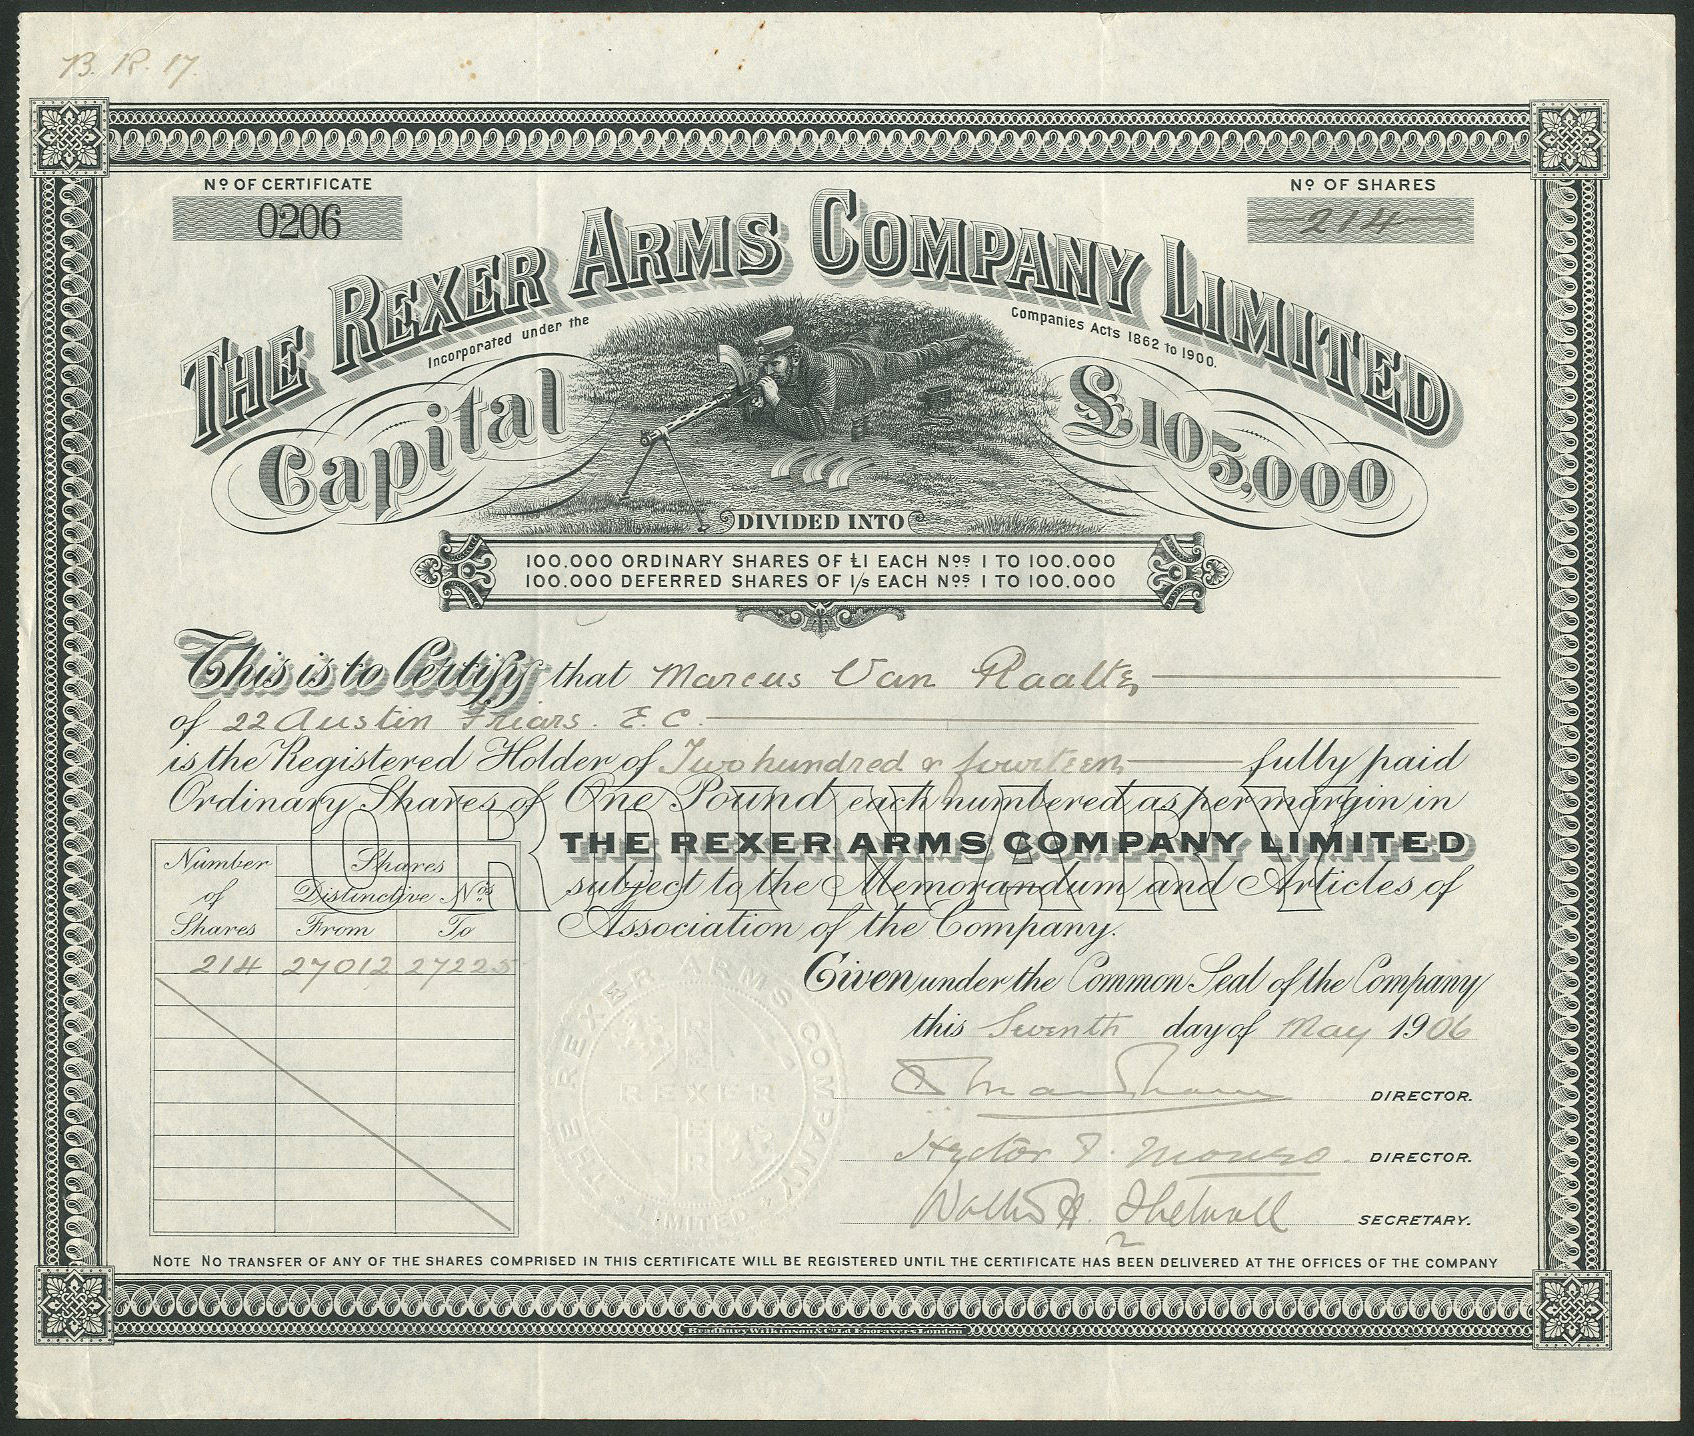 B. R. 17.
Nº OF CERTIFICATE
0206
Nº OF SHARES
214
THE REXER ARMS COMPANY LIMITED
Incorporated under the Companies Acts 1862 to 1900.
Capital £105,000
DIVIDED INTO
100.000 ORDINARY SHARES OF £1 EACH Nºs 1 TO 100.000
100.000 DEFERRED SHARES OF 1/s EACH Nºs 1 TO 100.000
This is to Certify that Marcus Van Raalte
of 22 Austin Friars. E.C.
is the Registered Holder of Two hundred & fourteen fully paid
Ordinary Shares of One Pound each numbered as per margin in
ORDINARY
THE REXER ARMS COMPANY LIMITED
subject to the Memorandum and Articles of
Association of the Company.
Number of Shares
Shares
Distinctive Nos
From To
214 27012 27225
Given under the Common Seal of the Company
this Seventh day of May 1906
DIRECTOR.
Hector F. Monro DIRECTOR.
Walter H. Thelwall SECRETARY.
THE REXER ARMS COMPANY LIMITED
REXER
NOTE NO TRANSFER OF ANY OF THE SHARES COMPRISED IN THIS CERTIFICATE WILL BE REGISTERED UNTIL THE CERTIFICATE HAS BEEN DELIVERED AT THE OFFICES OF THE COMPANY
Bradbury Wilkinson & Co Ld Engravers London